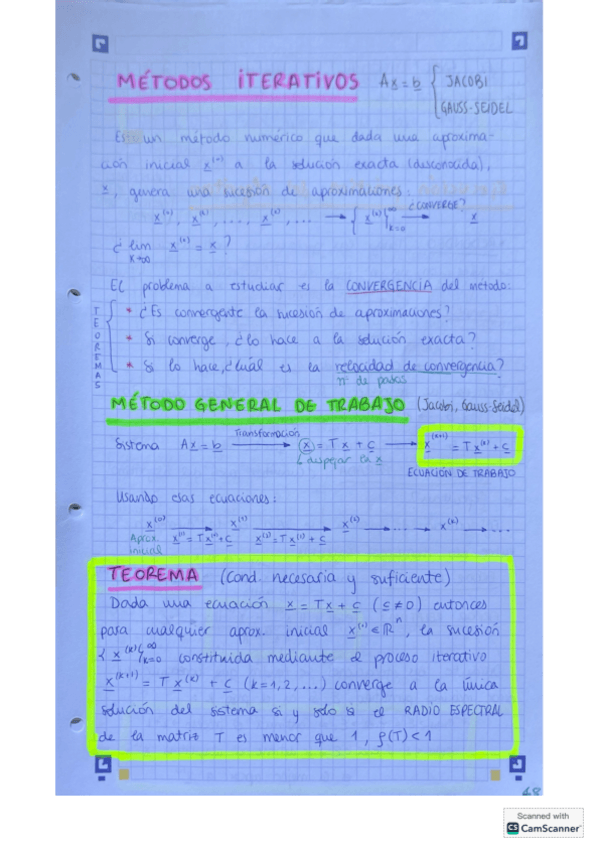 MÉTODOS ITERATIVOS Ax = b { JACOBI
GAUSS-SEIDEL
Es un método numérico que dada una aproxima-
ción inicial x⁽⁰⁾ a la solución exacta (desconocida),
x, genera una sucesión de aproximaciones:
x⁽⁰⁾, x⁽¹⁾, ..., x⁽ᵏ⁾, ... → {x⁽ᵏ⁾}∞k=0 ¿CONVERGE? → x
¿ lim x⁽ᵏ⁾ = x ?
k→∞
El problema a estudiar es la CONVERGENCIA del método:
TEOREMAS
* ¿Es convergente la sucesión de aproximaciones?
* Si converge, ¿lo hace a la solución exacta?
* Si lo hace, ¿cuál es la velocidad de convergencia?
nº de pasos
MÉTODO GENERAL DE TRABAJO (Jacobi, Gauss-Seidel)
Sistema Ax = b Transformación → x = Tx + c → x⁽ᵏ⁺¹⁾ = Tx⁽ᵏ⁾ + c
despejar la x ECUACIÓN DE TRABAJO
Usando esas ecuaciones:
x⁽⁰⁾ → x⁽¹⁾ → x⁽²⁾ → ... → x⁽ᵏ⁾ → ...
Aprox. x⁽¹⁾ = Tx⁽⁰⁾ + c x⁽²⁾ = Tx⁽¹⁾ + c
inicial
TEOREMA (cond. necesaria y suficiente)
Dada una ecuación x = Tx + c (c ≠ 0) entonces
para cualquier aprox. inicial x⁽⁰⁾ ∈ ℝⁿ, la sucesión
{x⁽ᵏ⁾}∞k=0 constituida mediante el proceso iterativo
x⁽ᵏ⁺¹⁾ = Tx⁽ᵏ⁾ + c (k=1,2,...) converge a la única
solución del sistema si y solo si el RADIO ESPECTRAL
de la matriz T es menor que 1, ρ(T) < 1
48
Scanned with
CS CamScanner